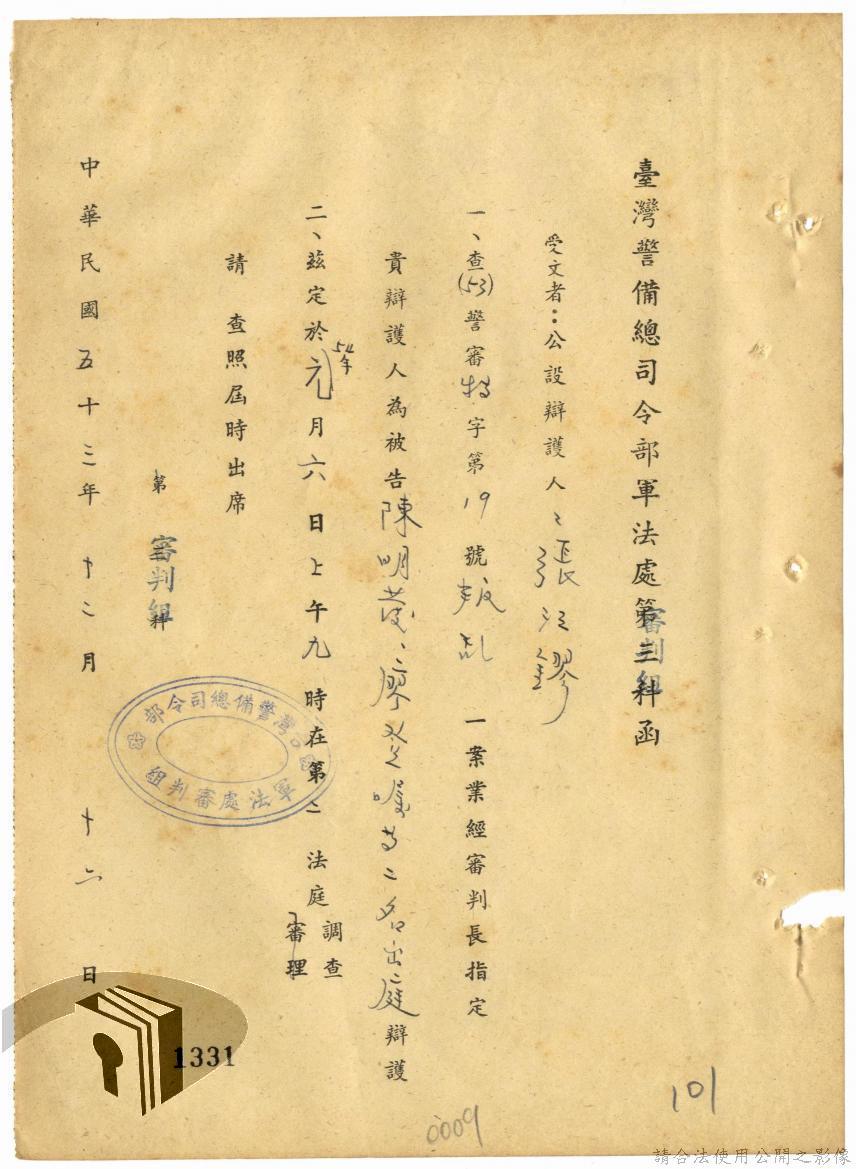 臺灣警備總司令部軍法處第三科函
審判組
受文者：公設辯護人 張
一、查(53)警審特字第19號叛亂一案業經審判長指定
貴辯護人為被告陳明 、廖 等二名出庭辯護
二、茲定於54年元月六日上午九時在第二法庭調查
審理
請查照屆時出席
第 科
審判組
中華民國五十三年十二月十六日
臺灣警備總司令部
軍法處審判組
1331
0009
101
請合法使用公開之影像